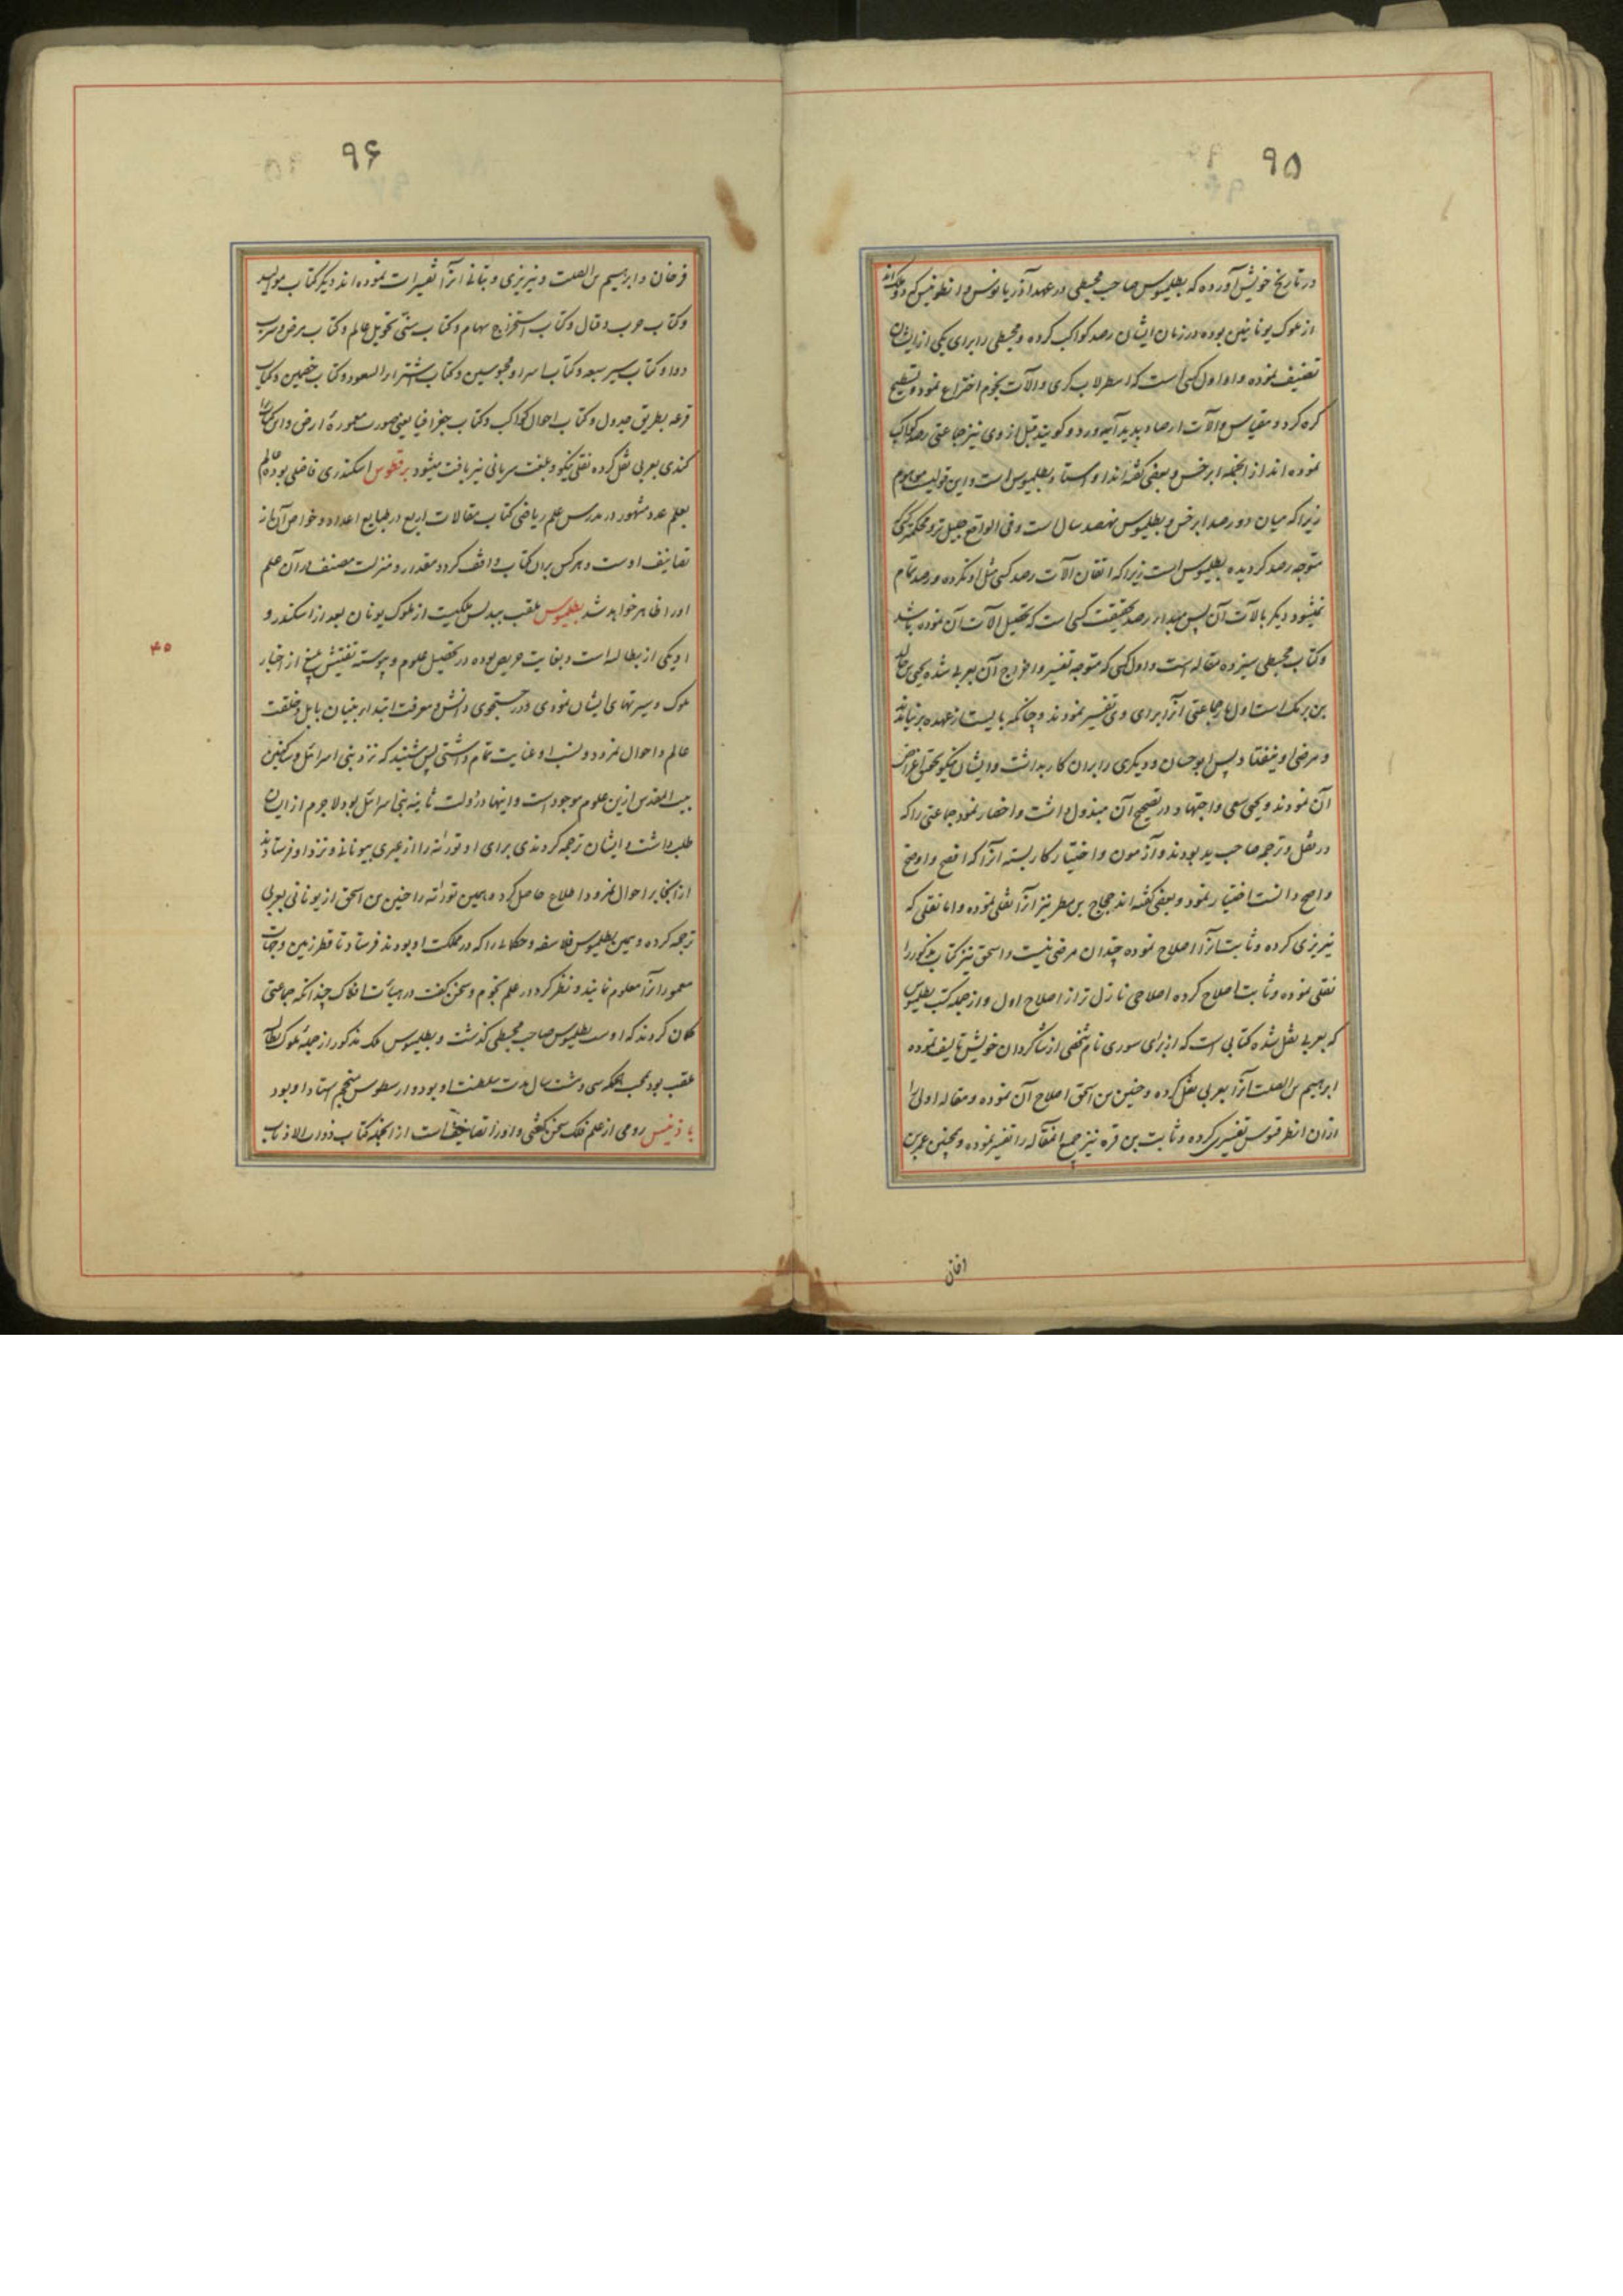 ۹۵
در تاریخ خویش آورده که بطلمیوس صاحب مجسطی در عهد آذریانوس و انطونیس که دو ملک اند
از ملوک یونانیین بوده در زمان ایشان رصد کواکب کرده و مجسطی را برای یکی از ایشان
تصنیف نموده و او اول کسی است که اسطرلاب کری و آلات نجوم اختراع نمود و تسطیح
کره کرد و مقیاس و آلات ارصاد پدید آورد و کویند قبل از وی نیز جماعتی رصد کواکب
نموده اند از انجمله ابرخس و بعضی کفته اند او استاد بطلمیوس است و این قولیست موهوم
زیرا که میان دو رصد ابرخس و بطلمیوس نهصد سال است و فی الواقع جلیل تر و محکمتر کسی که
متوجه رصد کردیده بطلمیوس است زیرا که اتقان آلات رصد کسی مثل او نکرده و رصد تمام
نمیشود دیکر بالات آن پس مبدا رصد بحقیقت کسی است که تحصیل آلات آن نموده باشد
وکتاب مجسطی سیزده مقاله است و اول کسی که متوجه تفسیر و اخراج آن بعربی شده یحیی بن خالد
بن برمک است اول بار جماعتی آنرا برای وی تفسیر نمودند و چنانکه بایست از عهده بر نیامدند
و مرضی او نیفتاد پس ابوحسان و دیکری را بران کار بداشت و ایشان نیکو تحقیق اغراض
آن نمودند و یحیی سعی و اجتهاد در تصحیح آن مبذول داشت و احضار نمود جماعتی را که
در نقل و ترجمه صاحب ید بودند و آزمون و اختیار کار بسته آنرا که افصح و اوضح
و اصح دانست اختیار نمود و بعضی کفته اند حجاج بن مطر نیز آنرا نقلی نموده و اما نقلی که
نیریزی کرده و ثابت آنرا اصلاح نموده چندان مرضی نیست و اسحق نیز کتاب مذکور را
نقلی نموده و ثابت اصلاح کرده اصلاحی نازل تر از اصلاح اول و از جمله کتب بطلمیوس
که بعربی نقل شده کتابی است که از برای سوری نام شخصی از شاکردان خویش تالیف نموده
ابرهیم بن الصلت آنرا بعربی نقل کرده و حنین بن اسحق اصلاح آن نموده و مقاله اولی را
ازان انطرقیوس تفسیر کرده و ثابت بن قره نیز جمیع المقاله را تفسیر نموده و همچنین عمر بن
افان
۹۶
فرخان و ابرهیم بن الصلت و نیریزی و بتانی آنرا تفسیرات نموده اند دیکر کتاب موالید
وکتاب حرب وقتال وکتاب استخراج سهام وکتاب سنی تحویل عالم وکتاب مرض و شرب
دوا وکتاب سیر سبعه وکتاب اسرا و محبوسین وکتاب اشترار السعود وکتاب خصمین وکتاب
قرعه بطریق جدول وکتاب احوال کواکب وکتاب جغرافیا یعنی صورت معمورۀ ارض و این کتاب را
کندی بعربی نقل کرده نقلی نیکو و بلغت سریانی نیز یافت میشود برقطوس اسکندری فاضلی بوده عالم
بعلم عدد مشهور در مدرس علم ریاضی کتاب مقالات اربع در طبایع اعداد و خواص آن از
تصانیف اوست و هرکس بران کتاب واقف کردد مقدار و منزلت مصنف در آن علم
او را ظاهر خواهد شد بطلمیوس ملقب ببدلس ملکیست از ملوک یونان بعد از اسکندر و
او یکی از بطالسه است و بغایت حریص بوده در تحصیل علوم و پیوسته تفتیش بلیغ از اخبار
ملوک و سیرتهای ایشان نمودی و در جستجوی دانش و معرفت ابتدا و بنیان بابل و خلقت
عالم و احوال نمرود و نسب او عنایت تمام داشتی پس شنید که نزد بنی اسرائل و ساکنین
بیت المقدس ازین علوم موجود است و اینها در دولت ثانیه بنی اسرائل بود لاجرم از ایشان
طلب داشت و ایشان ترجمه کردندی برای او تورته را از عبری بیونانی و نزد او فرستادند
از انجا بر احوال نمرود اطلاع حاصل کرد و همین تورته را حنین بن اسحق از یونانی بعربی
ترجمه کرده و همین بطلمیوس فلاسفه و حکما را که در مملکت او بودند فرستاد تا قطر زمین و جهات
معموره آنرا معلوم نمایند و نظر کرد در علم نجوم و سخن کفت در هیأت افلاک چندانکه جماعتی
کمان کردند که اوست بطلمیوس صاحب مجسطی کذشت و بطلمیوس ملک مذکور از جملۀ ملوک بطالسه
ملقب بود بمحب الحکمه سی و شت سال مدت سلطنت او بود و ارسطوس منجم استاد او بود
باذینس رومی از علم فلک سخن کفتی و او را تصانیف است از انجمله کتاب ذوات الاذناب
۴۵